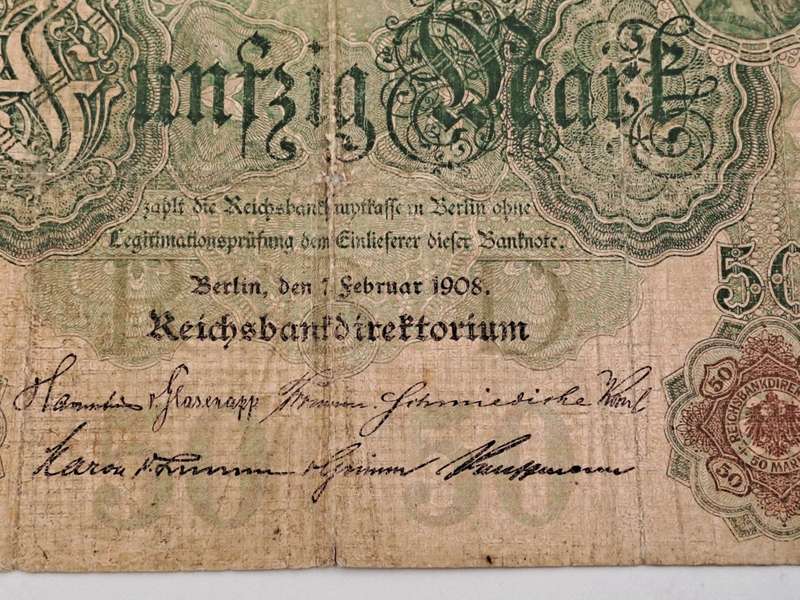 Fünfzig Mark
zahlt die Reichsbankhauptkasse in Berlin ohne
Legitimationsprüfung dem Einlieferer dieser Banknote.
Berlin, den 7 Februar 1908.
Reichsbankdirektorium
50
v. Glasenapp Schmiedicke
v Grimm Kauffmann
50
REICHSBANKDIRE
50 MAR
50
D
50 50